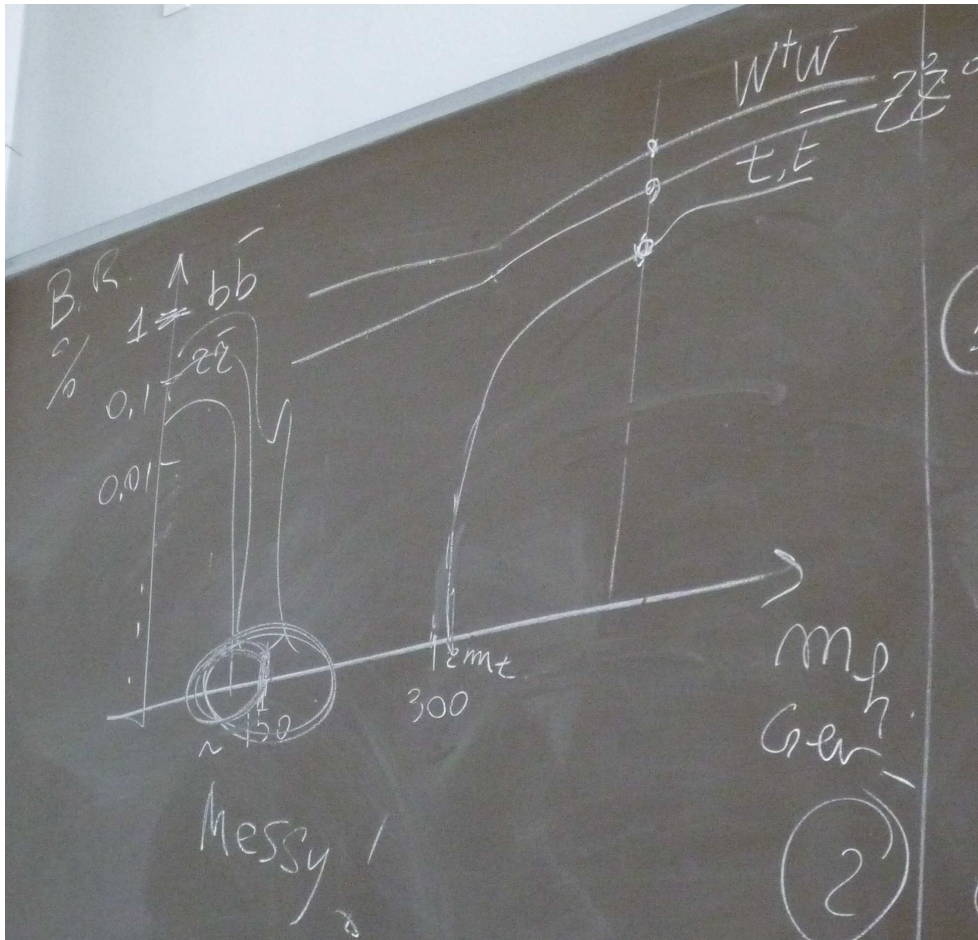 W⁺W⁻
Z⁰Z⁰
t, t̄
B.R.
%
1
bb̄
0,1
0,01
2mt
300
~ 130
mh
GeV
Messy!
2